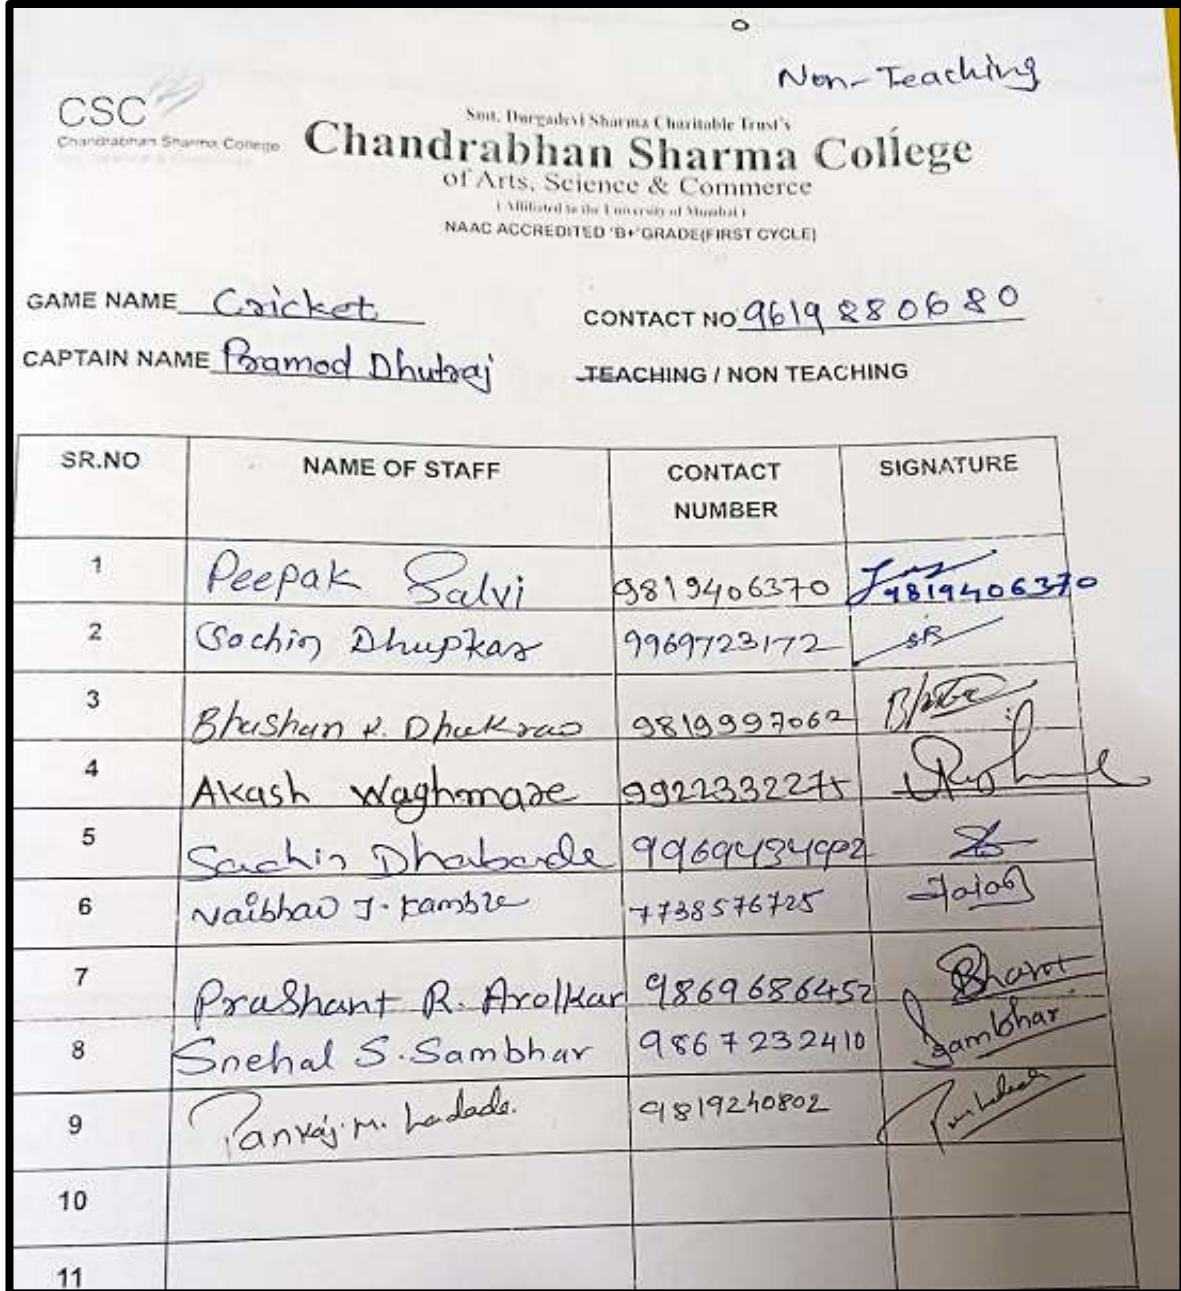 Non-Teaching
CSC
Chandrabhan Sharma College
Smt. Durgadevi Sharma Charitable Trust's
Chandrabhan Sharma College
of Arts, Science & Commerce
( Affiliated to the University of Mumbai )
NAAC ACCREDITED 'B+'GRADE(FIRST CYCLE)
GAME NAME Cricket CONTACT NO 9619880680
CAPTAIN NAME Pramod Dhutraj TEACHING / NON TEACHING
SR.NO NAME OF STAFF CONTACT NUMBER SIGNATURE
1 Deepak Salvi 9819406370 9819406370
2 Sachin Dhupkar 9969723172 SR
3 Bhushan K. Dhukrao 9819997062
4 Akash Waghmare 9922332275
5 Sachin Dhabarde
6 Vaibhav J. Kamble 7738576725
7 Prashant R. Arolkar 9869686452
8 Snehal S. Sambhar 9867232410 Sambhar
9 Pankaj M. 9819240802
10
11